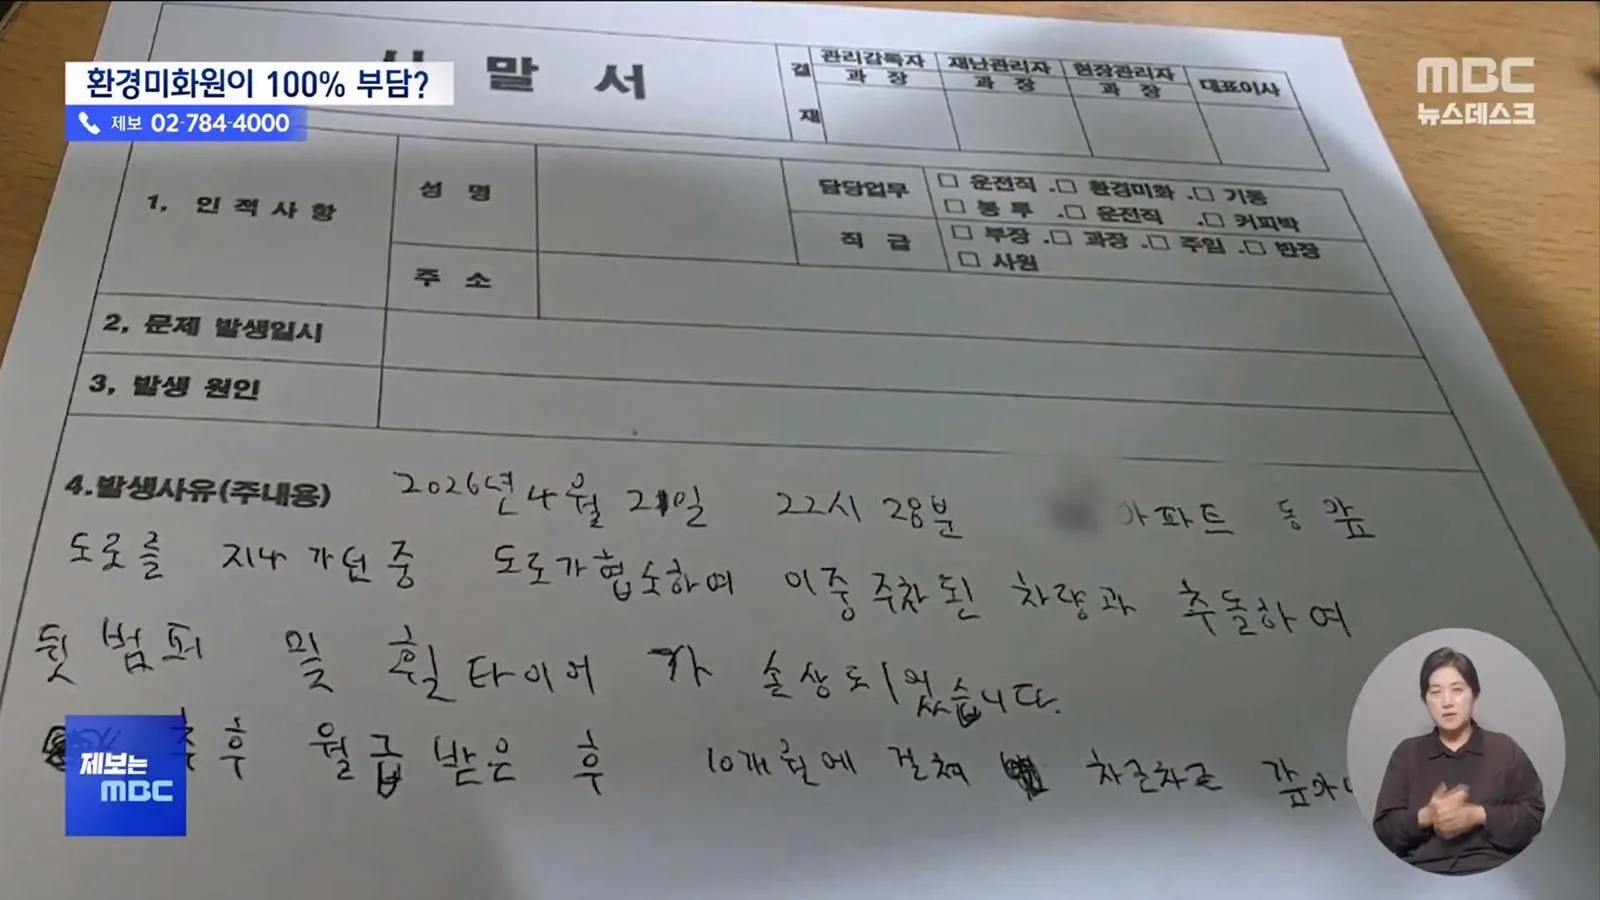 환경미화원이 100% 부담?
제보 02-784-4000
MBC
뉴스데스크
말 서
결재
관리감독자 재난관리자 현장관리자 대표이사
과 장 과 장 과 장
1, 인적사항
성 명
담당업무
□ 운전직 .□ 환경미화 .□ 기동
□ 봉투 .□ 운전직 .□ 커피박
직 급
□ 부장 .□ 과장 .□ 주임 .□ 반장
□ 사원
주 소
2, 문제 발생일시
3, 발생 원인
4.발생사유(주내용) 2026년 4월 21일 22시 28분 아파트 동 앞
도로를 지나가던 중 도로가 협소하여 이중주차된 차량과 추돌하여
뒷범퍼 및 휠타이어가 손상되었습니다.
추후 월급 받은 후 10개월에 걸쳐 차근차근
제보는
MBC